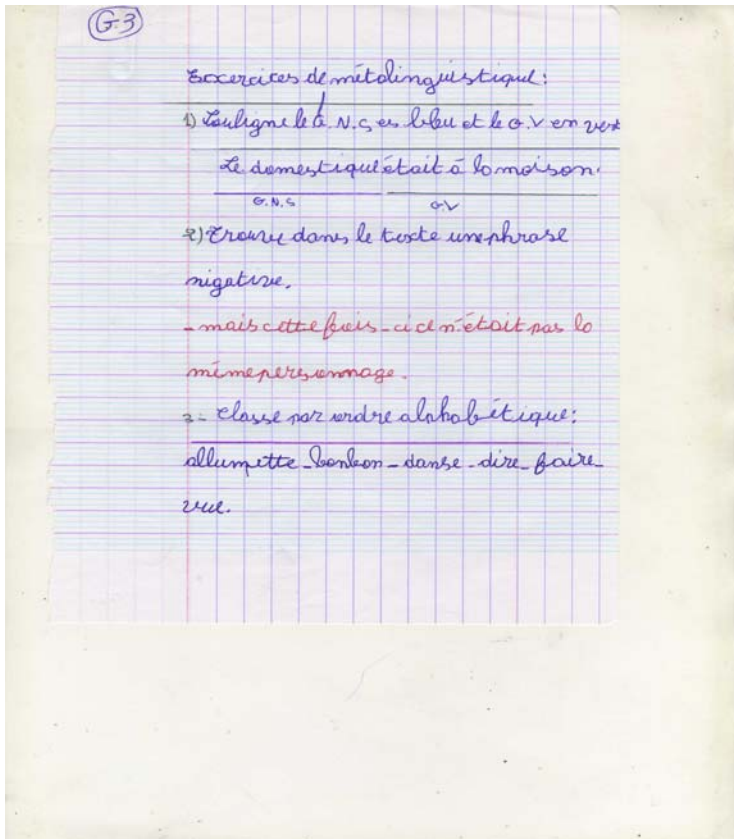 G.3
Exercices de métalinguistique:
1) Souligne le G.N.S en bleu et le G.V en vert
Le domestique était à la maison.
G.N.S G.V
2) Trouve dans le texte une phrase
négative.
- mais cette fois-ci ce n'était pas le
même personnage.
3- Classe par ordre alphabétique:
allumette - bonbon - danse - dire - faire -
vue.